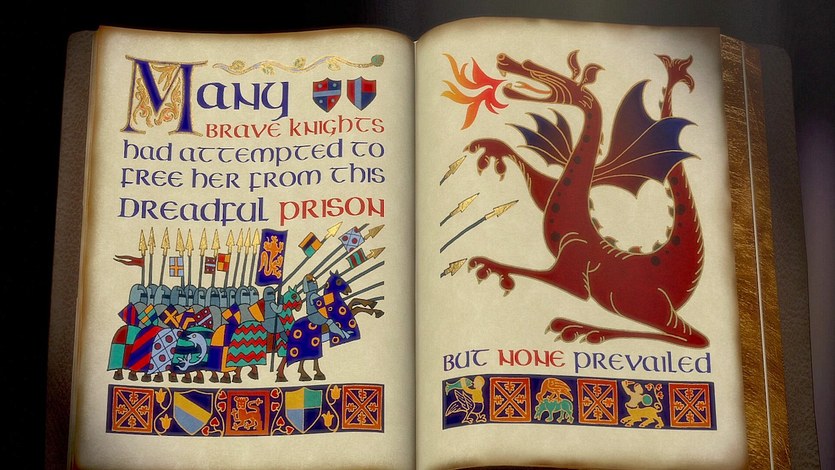 Many
BRAVE KNIGHTS
had attempted to
free her from this
DREADFUL PRISON
BUT NONE PREVAILED